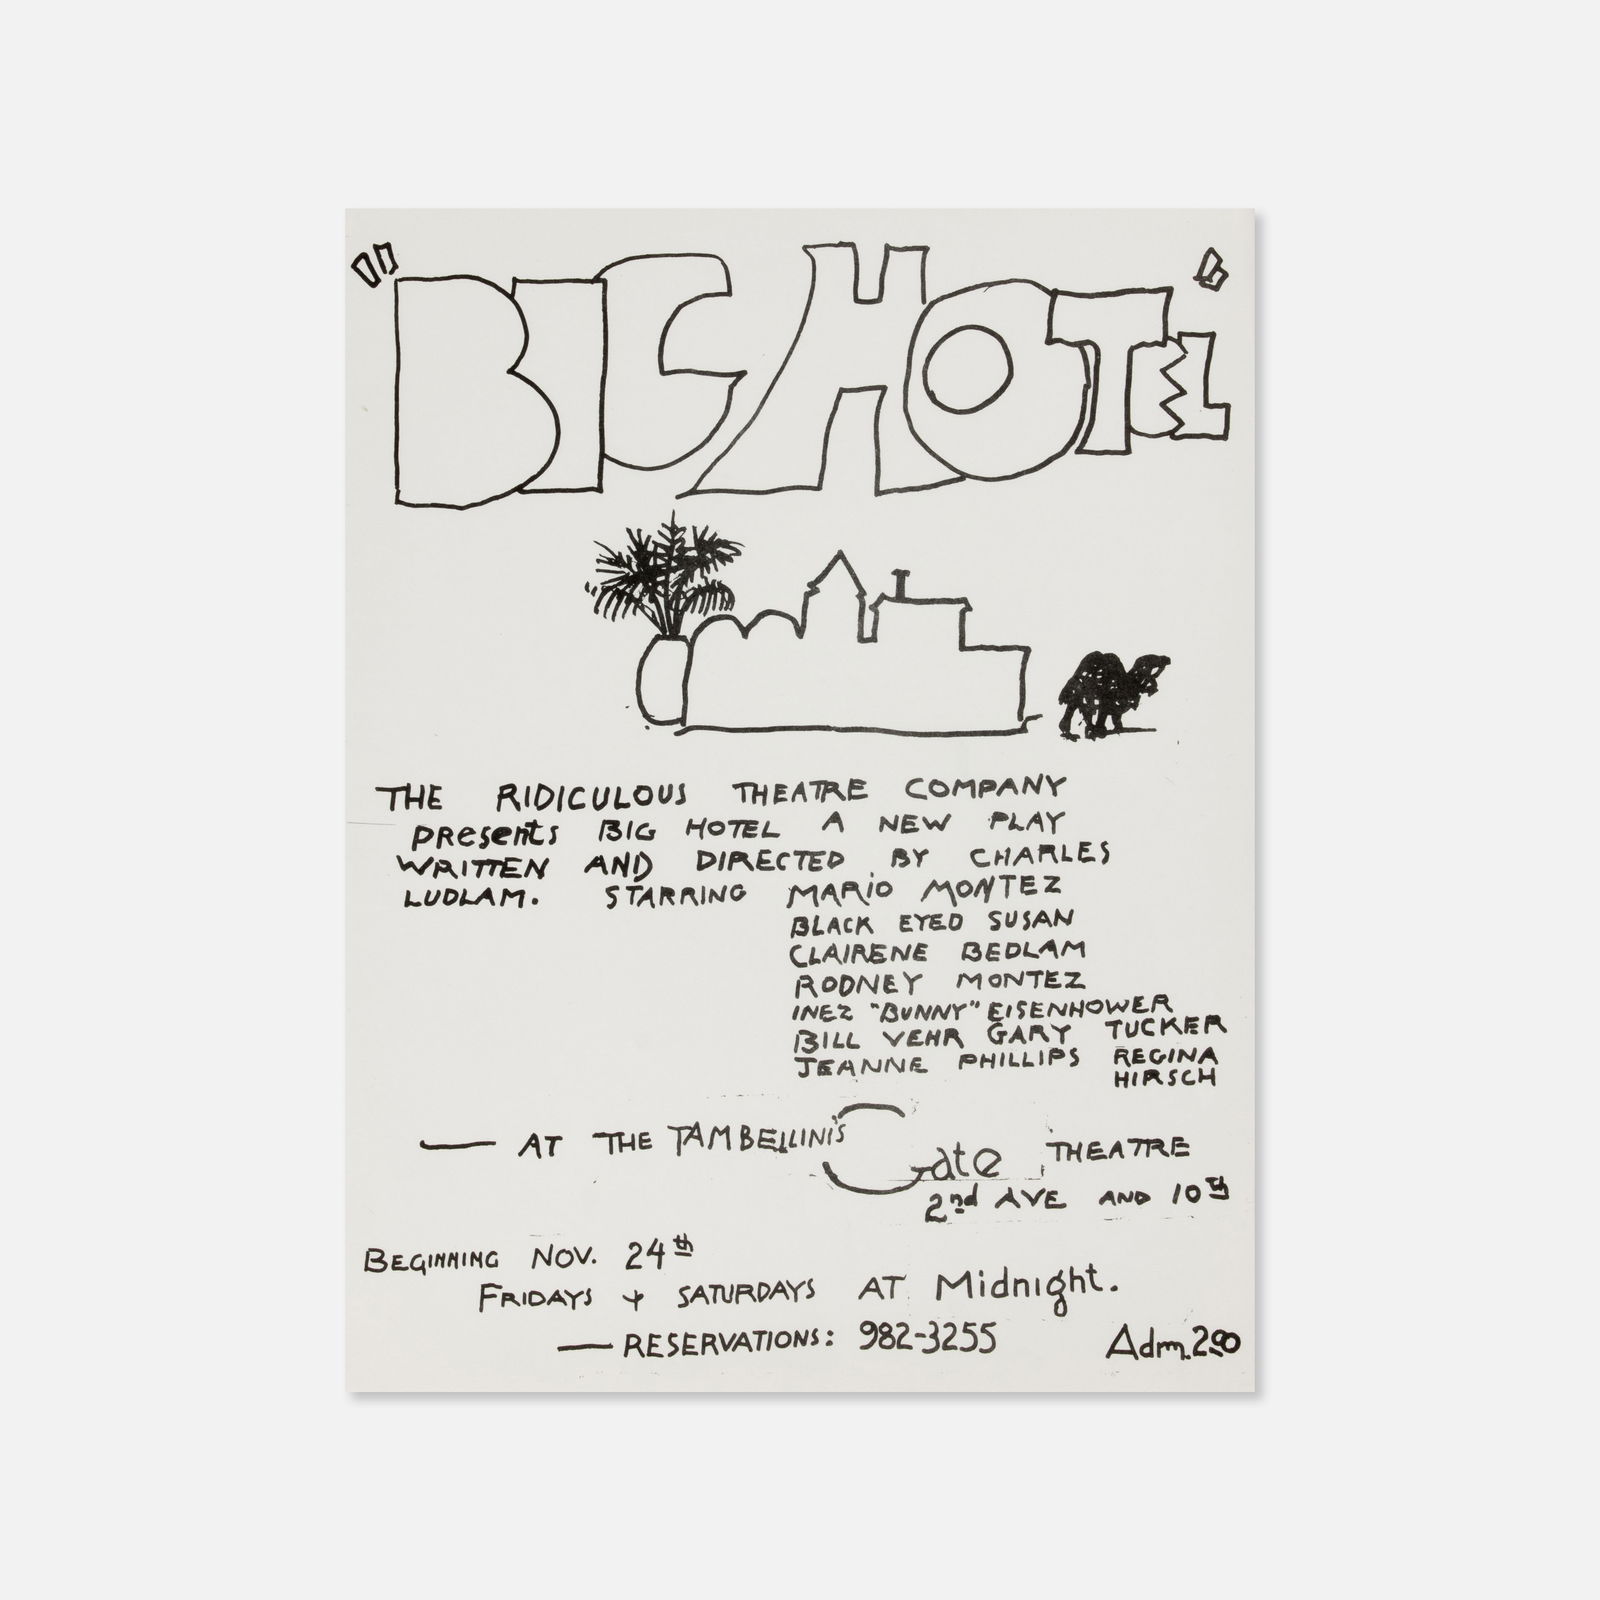 "BIG HOTEL"
THE RIDICULOUS THEATRE COMPANY
presents BIG HOTEL A NEW PLAY
WRITTEN AND DIRECTED BY CHARLES
LUDLAM. STARRING MARIO MONTEZ
BLACK EYED SUSAN
CLAIRENE BEDLAM
RODNEY MONTEZ
INEZ "BUNNY" EISENHOWER
BILL VEHR GARY TUCKER
JEANNE PHILLIPS REGINA
HIRSCH
— AT THE TAMBELLINI'S Gate THEATRE
2nd AVE AND 10th
BEGINNING NOV. 24th
FRIDAYS + SATURDAYS AT Midnight.
— RESERVATIONS: 982-3255 Adm. 2.00